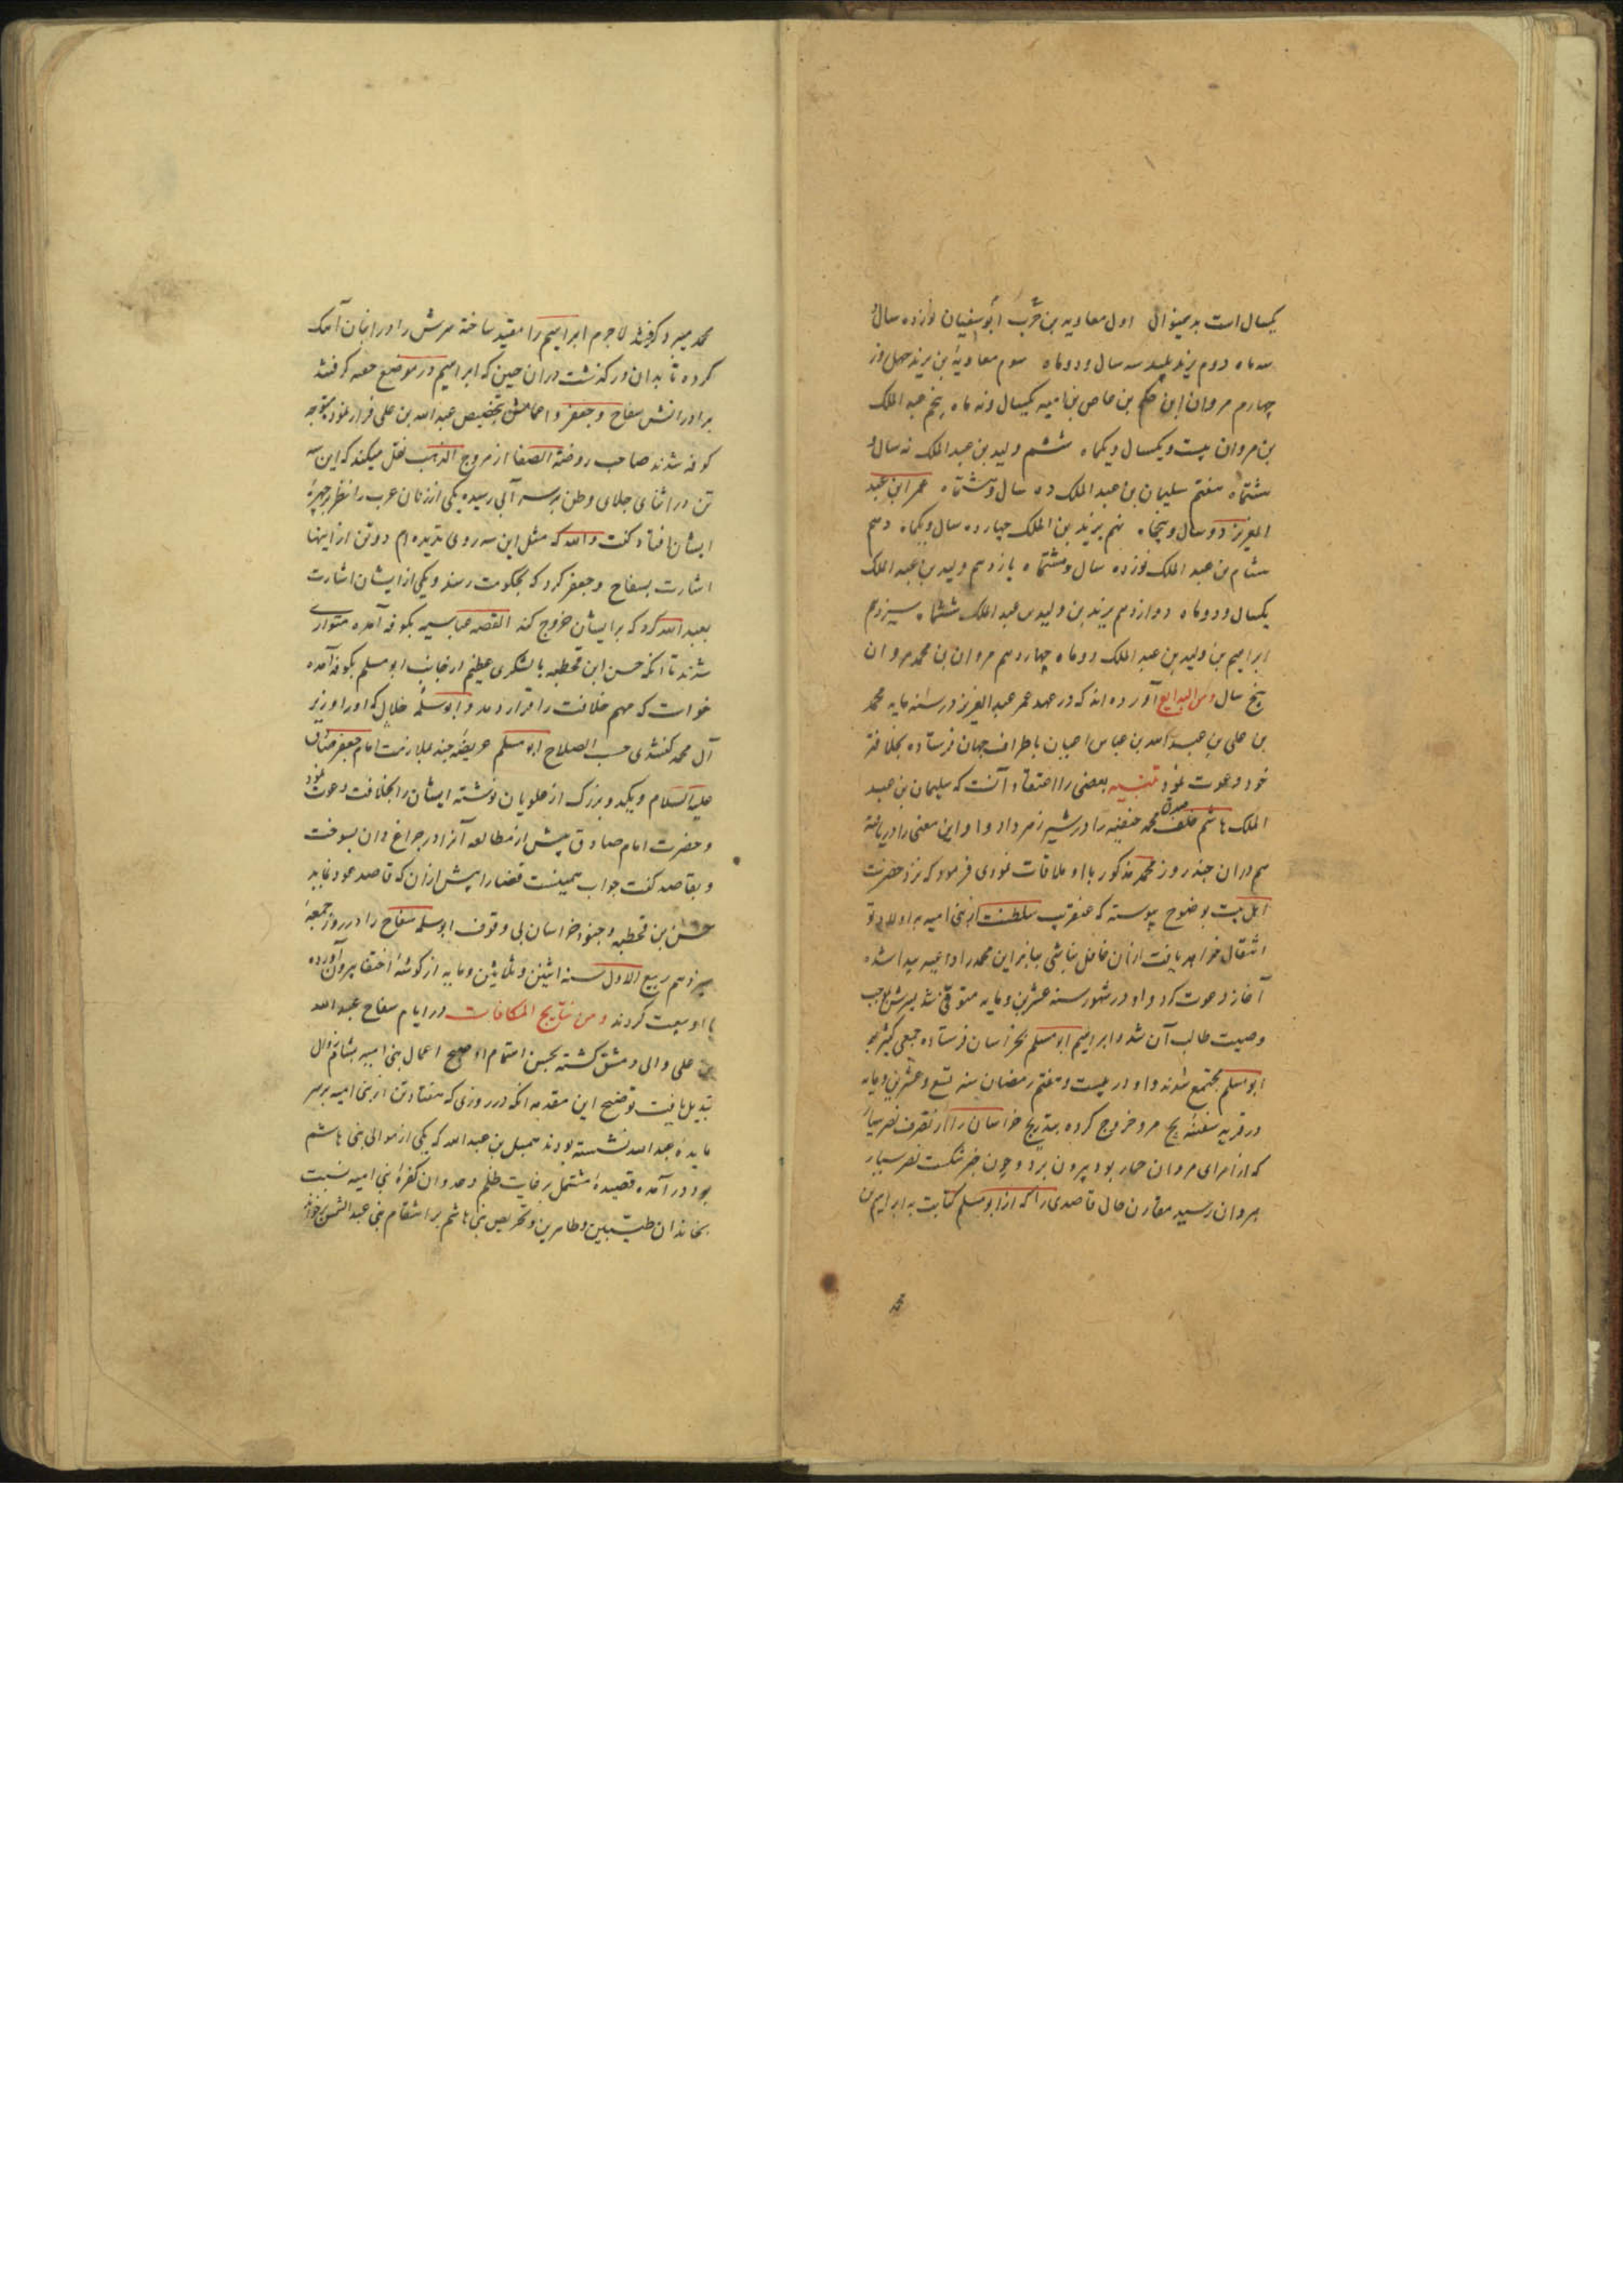 یکسال است بدینموالی اول معاویه بن حرب ابوسفیان نوزده سال و
سه ماه دوم یزید پلید سه سال و دو ماه سوم معاویهٔ بن یزید چهل روز
چهارم مروان ابن حکم بن عاص بن امیه یکسال و نه ماه پنجم عبد الملک
بن مروان بیست و یکسال و یکماه ششم ولید بن عبد الملک نه سال و
هشتماه هفتم سلیمان بن عبد الملک ده سال و هشتماه عمر ابن عبد
العزیز دو سال و پنجماه نهم یزید بن الملک چهارده سال و یکماه دهم
هشام بن عبد الملک نوزده سال و هشتماه یازدهم ولید بن عبد الملک
یکسال و دو ماه دوازدهم یزید بن ولید بن عبد الملک ششماه سیزدهم
ابراهیم بن ولید بن عبد الملک دو ماه چهاردهم مروان بن محمد مروان
پنج سال ومن البدایع آورده اند که در عهد عمر عبد العزیز در سنه مایه محمد
بن علی بن عبد الله بن عباس اعیان باطراف جهان فرستاده بخلافة
خود دعوت نمود تنبیه بعضی را اعتقاد آنست که سلیمان بن عبد
الملک هاشم خلف محمد حنفیه را در شیر زهر داد و او این معنی را دریافته
هم دران چند روز محمد مذکور با او ملاقات نمودی فرمود که نزد حضرت
اهل بیت بوضوح پیوسته که عنقریب سلطنت از بنی امیه باولاد تو
انتقال خواهد یافت ازان غافل نباشی بنابراین محمد را داعیه پیدا شده
آغاز دعوت کرد و او در شهور سنه عشرین و مایه متوفی شد پسرش بموجب
وصیت طالب آن شد و ابراهیم ابومسلم بخراسان فرستاده جمعی کثیر بر
ابو اسلم مجتمع شدند و او در بیست و هفتم رمضان سنه تسع و عشرین و مایه
در قریه سفیدنج مرو خروج کرده بتدریج خراسان را از تصرف نصر سیار
که از امرای مروان حمار بود بیرون برد و چون خبر شکست نصر سیار
بمروان رسید مقارن حال قاصدی را که از ابو مسلم کتابت به ابراهیم بن
محمد
محمد میبرد گرفتند لاجرم ابراهیم را مقید ساخته سرش را در انبان آهک
کرده تا بدان درگذشت دران حین که ابراهیم در موضع حمیمه گرفتند
برادرانش سفاح و جعفر و اعمامش بتخصیص عبد الله بن علی فرار نمود متوجه
کوفه شدند صاحب روضة الصفا از مروج الذهب نقل میکند که این سه
تن در اثنای جلای وطن بر سر آبی رسیده یکی از زنان عرب را نظر بر چهرهٔ
ایشان افتاد گفت والله که مثل این سه روی ندیده ام دو تن از اینها
اشارت بسفاح و جعفر کرد که بحکومت رسند و یکی از ایشان اشارت
بعبد الله کرد که بر ایشان خروج کند القصه عباسیه بکوفه آمده متواری
شدند تا انکه حسن ابن قحطبه با لشکری عظیم از جانب ابو مسلم بکوفه آمده
خواست که مهم خلافت را قرار دهد و ابو سلمه خلال که او را وزیر
آل محمد گفتندی حسب الصلاح ابو مسلم عریضهٔ چند بملازمت امام جعفر صادق
علیه السلام و یکدو بزرک از علویان نوشته ایشان را بخلافت دعوت نمود
و حضرت امام صادق پیش از مطالعه آنرا در چراغ دان بسوخت
و بقاصد گفت جواب همینست قضا را پیش ازان که قاصد عود نماید
حسن بن قحطبه و جنود خراسان بی وقوف ابو سلمه سفاح را در روز جمعهٔ
سیزدهم ربیع الاول سنه اثنین و ثلاثین و مایه از گوشهٔ اختفا بیرون آورده
با او بیعت کردند ومن نتایج المکافات در ایام سفاح عبد الله
بن علی والی دمشق گشته بحسن اهتمام او صبح اعمال بنی امیه بشام زوال
تبدیل یافت توضیح این مقدمه انکه در روزی که هفتاد تن از بنی امیه بر سر
مایدهٔ عبد الله نشسته بودند سمیل بن عبد الله که یکی از موالی بنی هاشم
بود در آمده قصیدهٔ مشتمل بر غایت ظلم و عدوان کفرهٔ بنی امیه نسبت
بخاندان طیبین و طاهرین و تحریص بنی هاشم بر انتقام بنی عبد الشمس برخواند